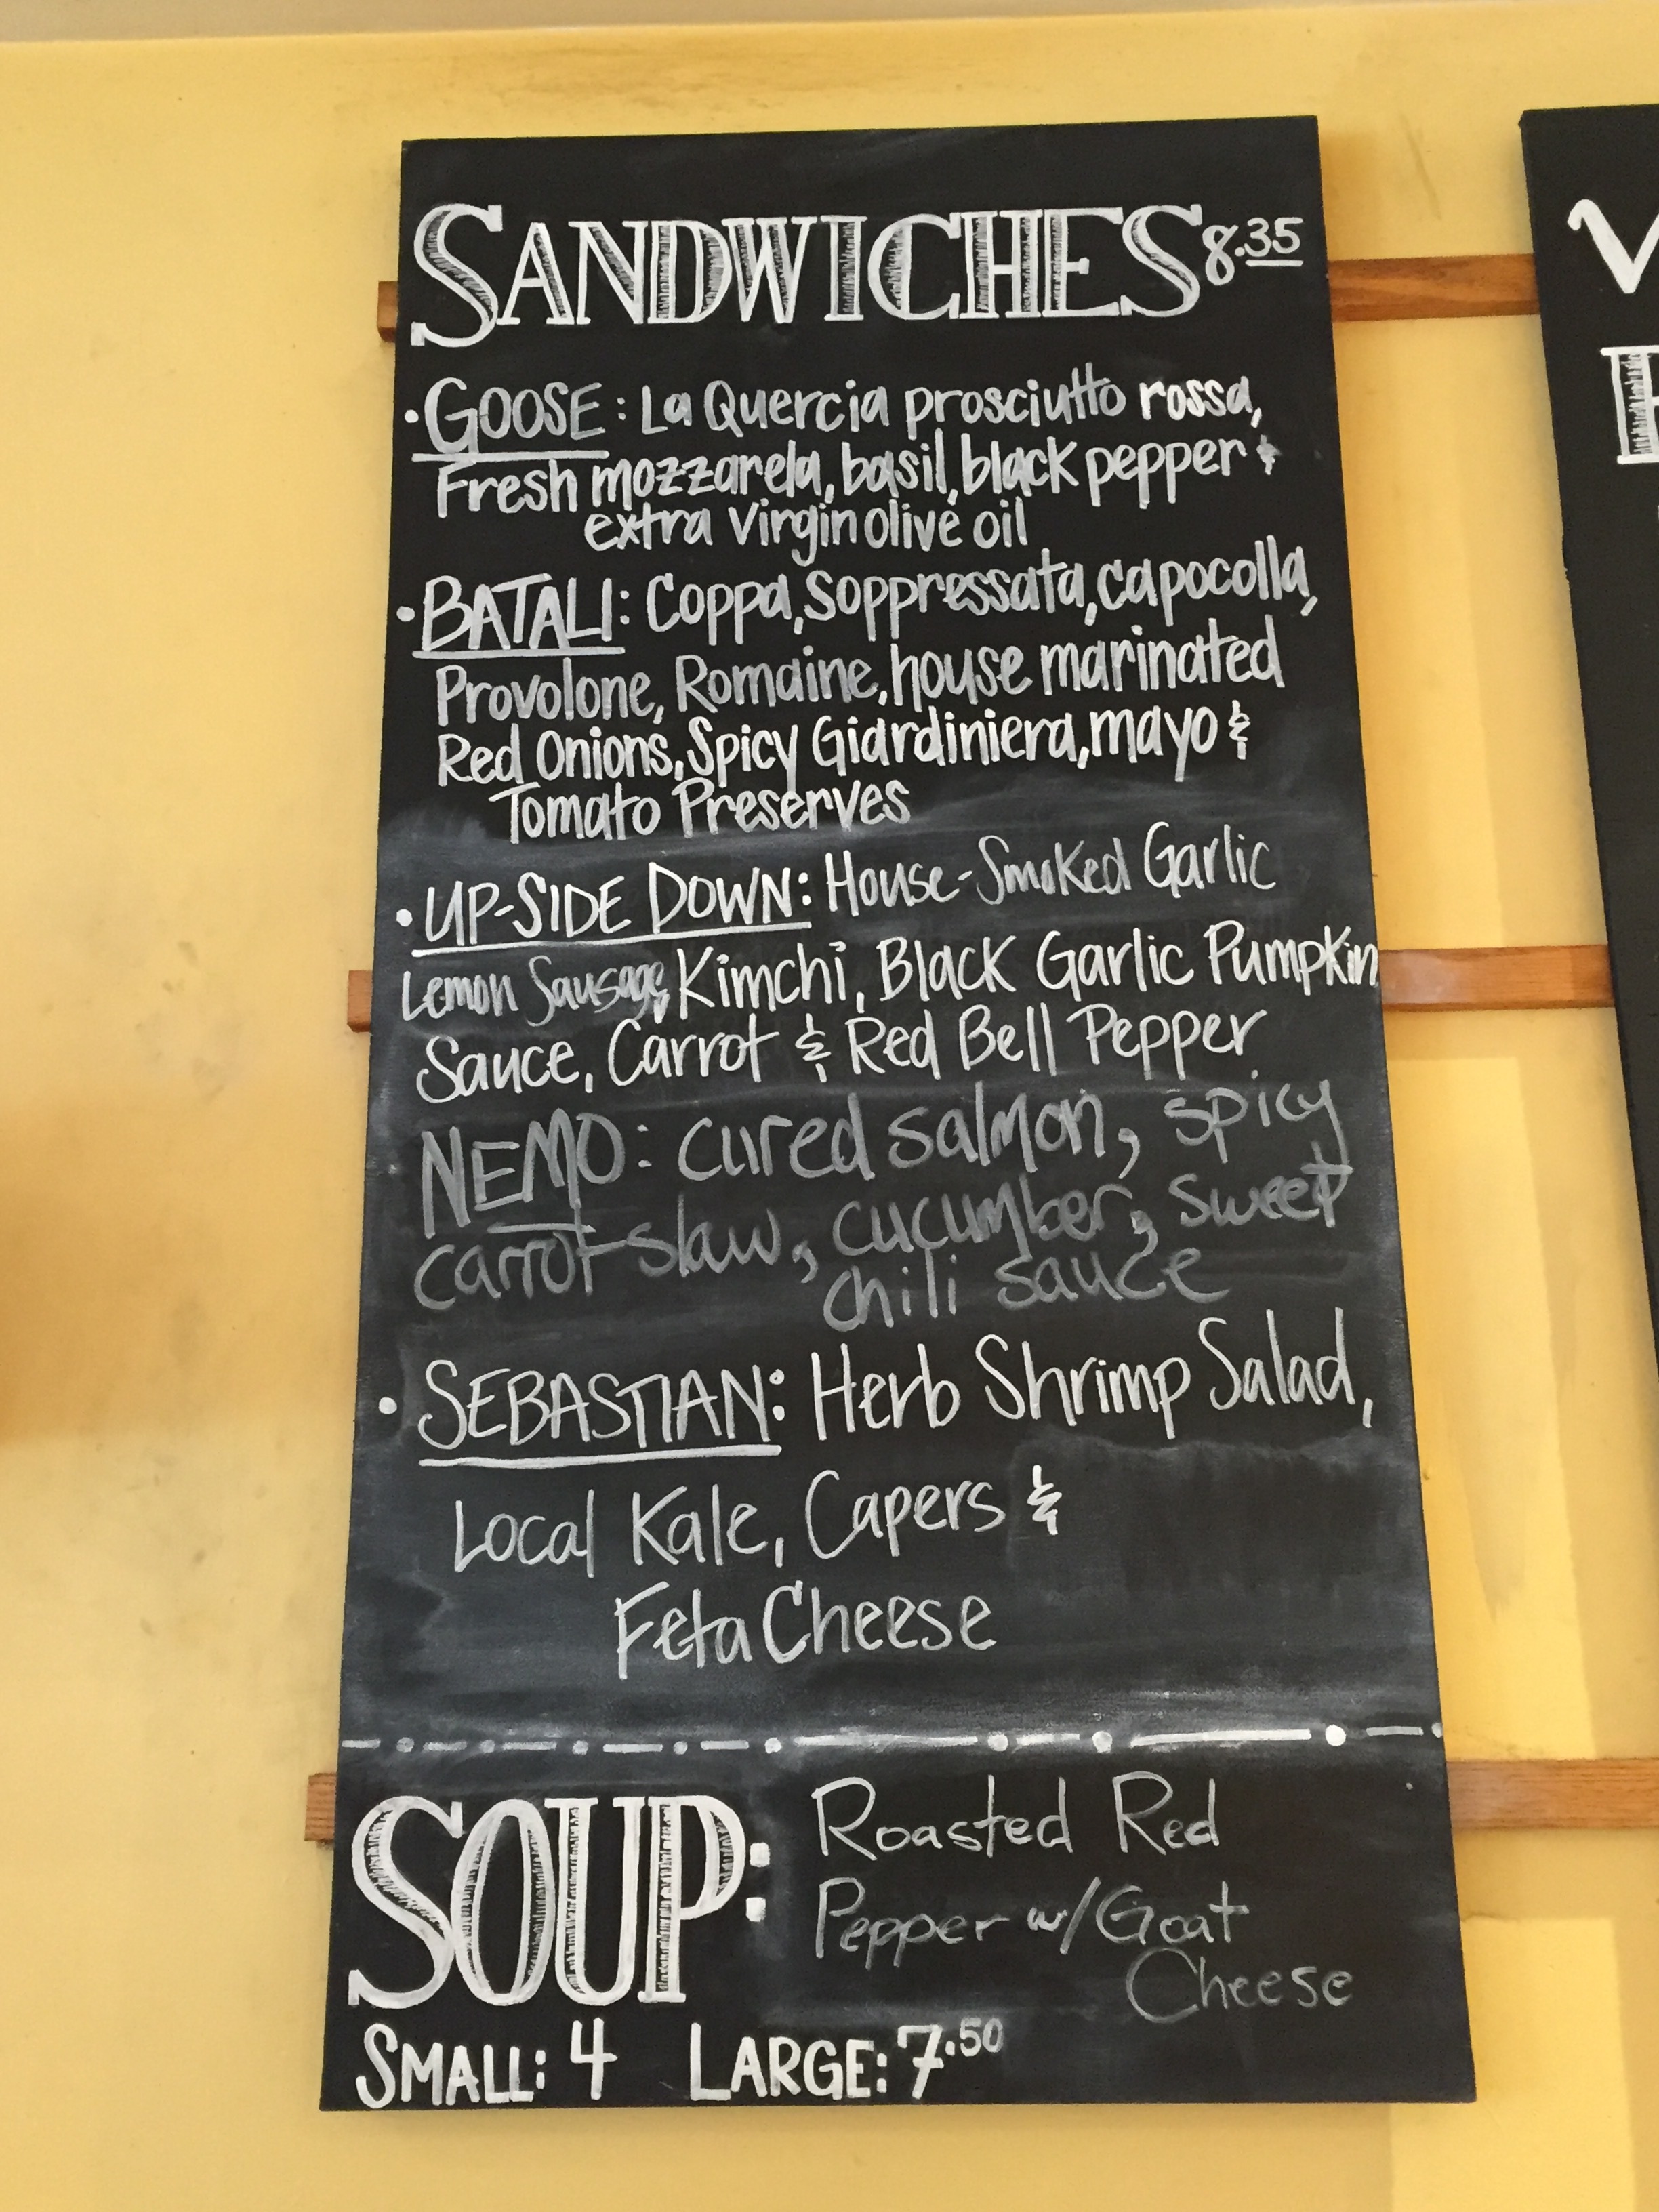 SANDWICHES 8.35
• GOOSE: La Quercia prosciutto rossa,
Fresh mozzarela, basil, black pepper &
extra virgin olive oil
• BATALI: Coppa, Soppressata, capocolla,
Provolone, Romaine, house marinated
Red Onions, Spicy Giardiniera, mayo &
Tomato Preserves
• UP-SIDE DOWN: House-Smoked Garlic
Lemon Sausage, Kimchi, Black Garlic Pumpkin
Sauce, Carrot & Red Bell Pepper
NEMO: cured salmon, spicy
carrot slaw, cucumber, sweet
chili sauce
• SEBASTIAN: Herb Shrimp Salad,
Local Kale, Capers &
Feta Cheese
SOUP: Roasted Red
Pepper w/ Goat
Cheese
SMALL: 4 LARGE: 7.50